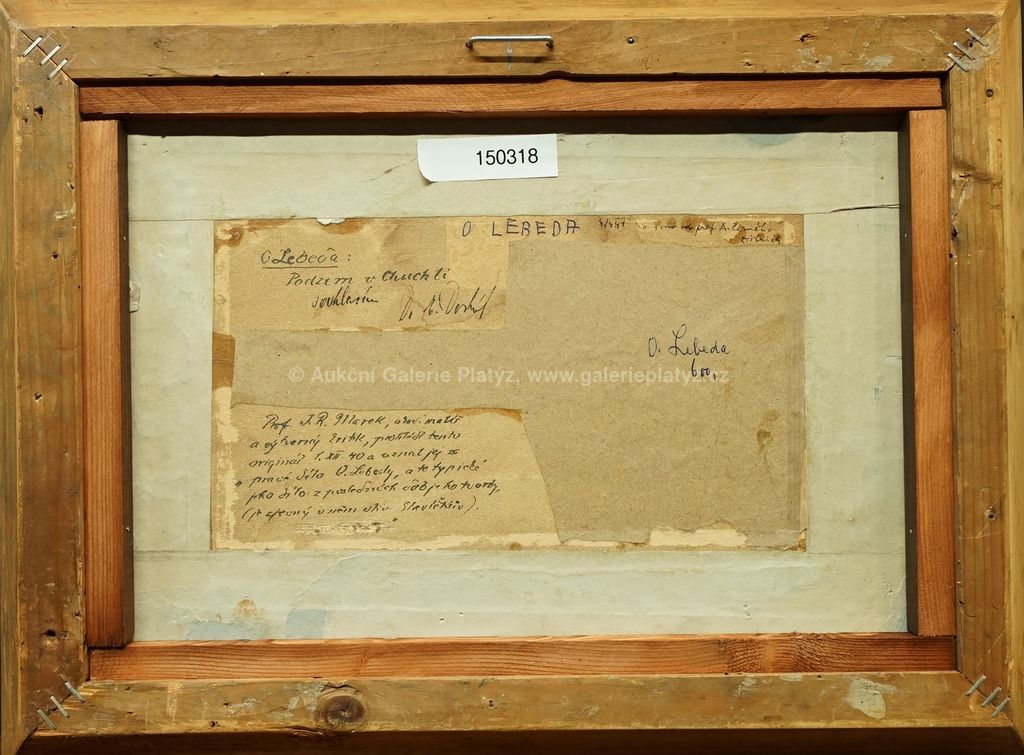 150318
O LEBEDA
O Lebeda:
Podzim v Chuchli
souhlasím
O. Lebeda
600,
© Aukční Galerie Platyz, www.galerieplatyz.cz
Prof. J. R. Marek, akad. malíř
a výtvarný kritik, prohlédl tento
originál 1. XII. 40 a uznal jej za
" pravé dílo O. Lebedy, a to typické
jako dílo z posledních dob jeho tvorby,
(je zjevný v něm vliv Slavíčkův).